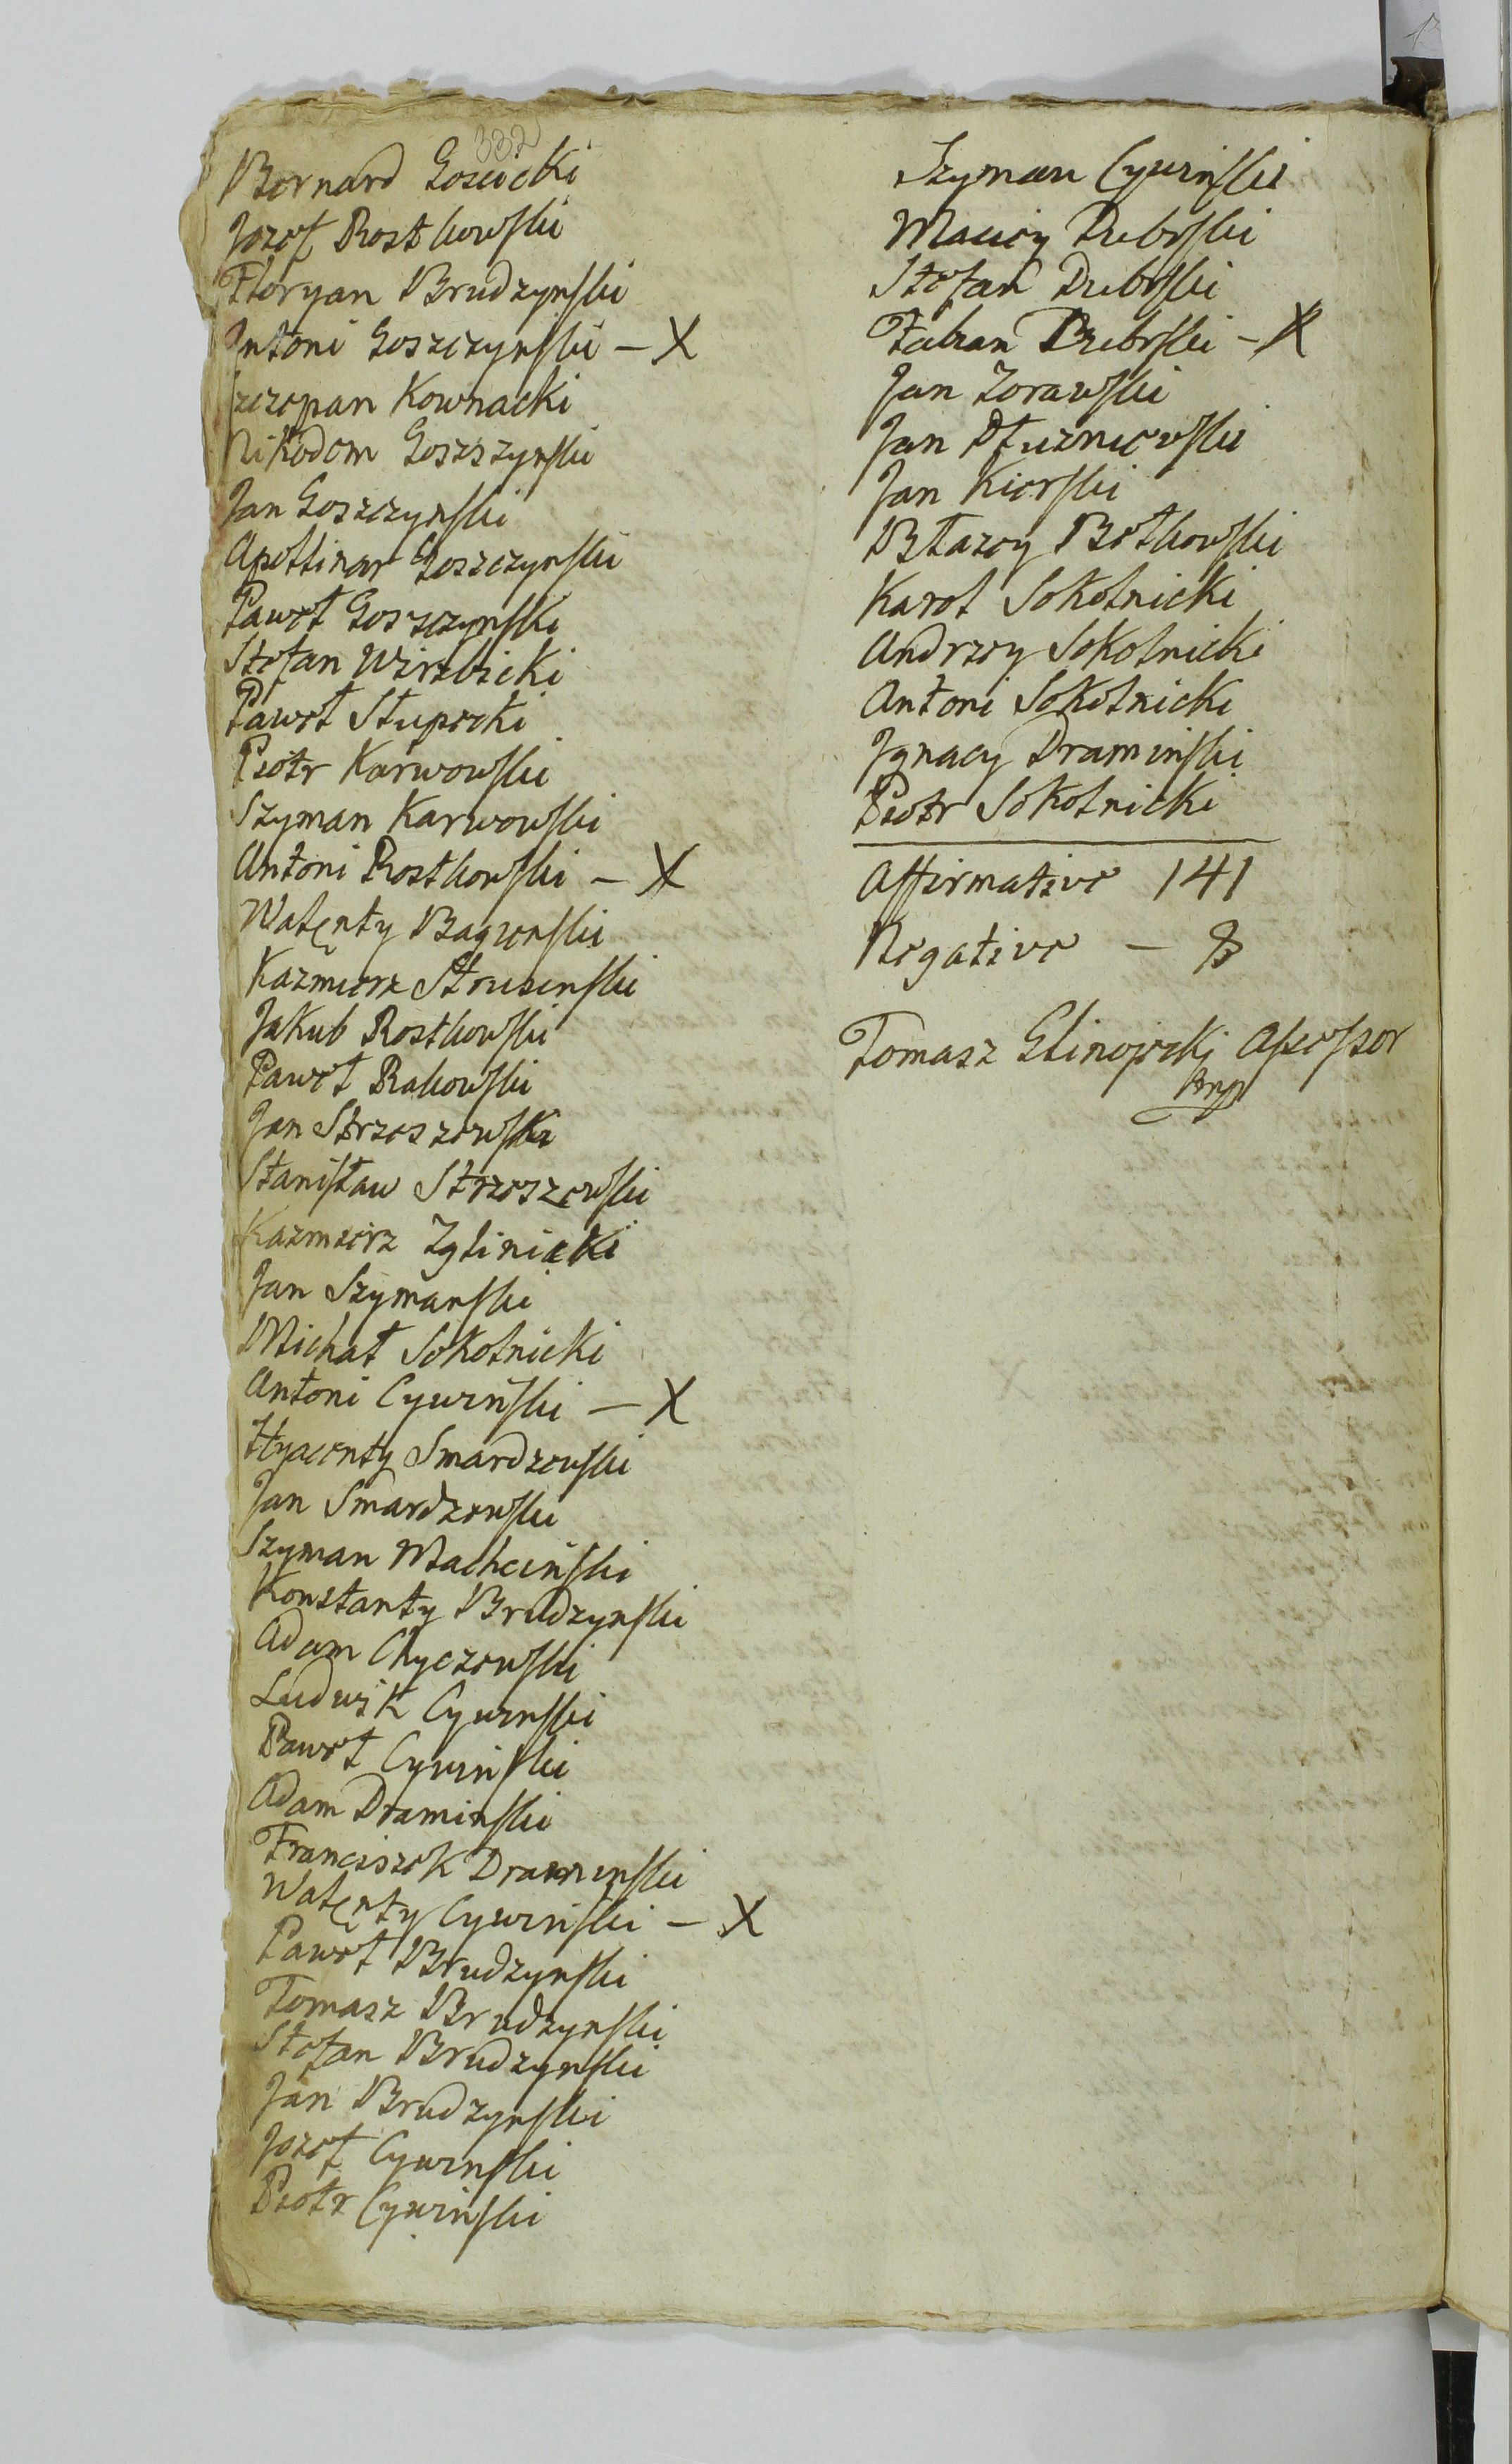 332
Bernard Gościcki
Jozef Rostkowski
Floryan Brudzynski
Antoni Goszczynski – X
Szczepan Kownacki
Nikodem Goszszynski
Jan Goszczynski
Apollinar Goszczynski
Paweł Goszczynski
Stefan Wirzbicki
Paweł Słupecki
Piotr Karwowski
Szyman Karwowski
Antoni Rostkowski – X
Walęty Bagięnski
Kazmierz Strusinski
Jakub Rostkowski
Paweł Rakowski
Jan Strzeszewski
Stanisław Strzeszewski
Kazmierz Zglinicki
Jan Szymanski
Michał Sokolnicki
Antoni Cywiński – X
Hyacenty Smardzewski
Jan Smardzewski
Szyman Machciński
Konstanty Brudzynski
Adam Chyczewski
Ludwik Cywinski
Paweł Cywinski
Adam Draminski
Franciszek Draminski
Walęty Cywiński – X
Paweł Brudzynski
Tomasz Brudzynski
Stefan Brudzynski
Jan Brudzynski
Jozef Cywinski
Piotr Cywinski
Szyman Cywinski
Maciey Dębski
Stefan Dębski
Fabian Dębski – X
Jan Zorawski
Jan Dłużniewski
Jan Kierski
Błazey Bołkowski
Karol Sokolnicki
Andrzey Sokolnicki
Antoni Sokolnicki
Jgnacy Draminski
Piotr Sokolnicki
Affirmative 141
Negative – 8
Tomasz Glinojecki Assessor
mp